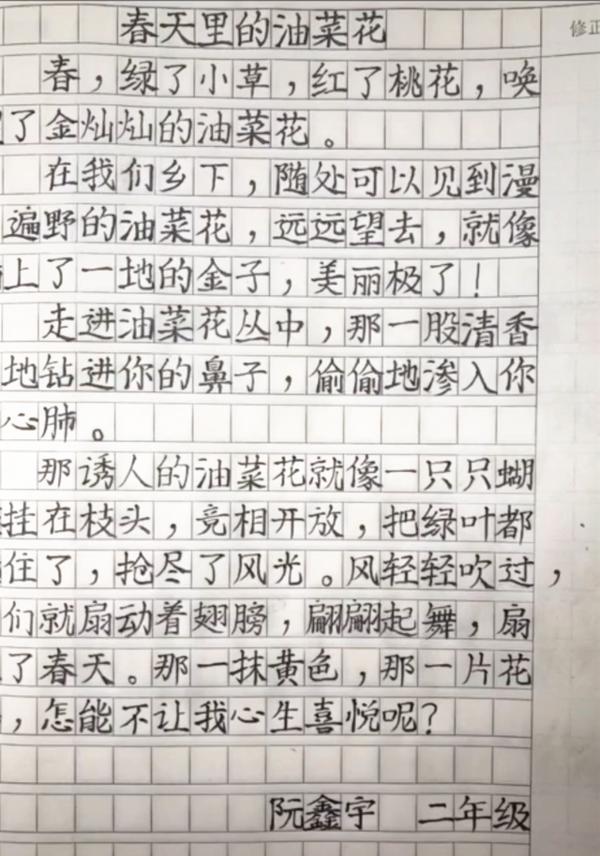 春天里的油菜花
修正
春，绿了小草，红了桃花，唤
了金灿灿的油菜花。
在我们乡下，随处可以见到漫
遍野的油菜花，远远望去，就像
上了一地的金子，美丽极了！
走进油菜花丛中，那一股清香
地钻进你的鼻子，偷偷地渗入你
心肺。
那诱人的油菜花就像一只只蝴
挂在枝头，竞相开放，把绿叶都
住了，抢尽了风光。风轻轻吹过，
们就扇动着翅膀，翩翩起舞，扇
了春天。那一抹黄色，那一片花
，怎能不让我心生喜悦呢？
阮鑫宇 二年级